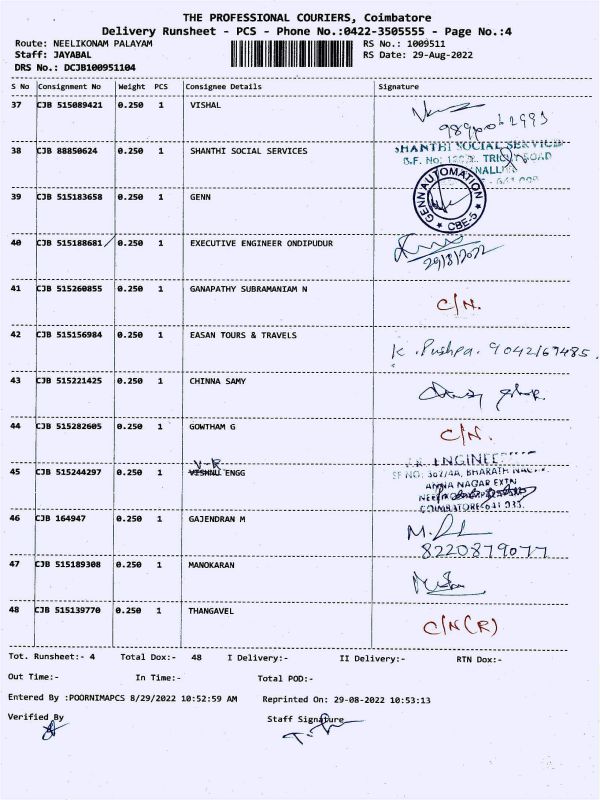 THE PROFESSIONAL COURIERS, Coimbatore
Delivery Runsheet - PCS - Phone No.:0422-3505555 - Page No.:4
Route: NEELIKONAM PALAYAM RS No.: 1009511
Staff: JAYABAL RS Date: 29-Aug-2022
DRS No.: DCJB100951104
S No Consignment No Weight PCS Consignee Details Signature
37 CJB 515089421 0.250 1 VISHAL
38 CJB 88850624 0.250 1 SHANTHI SOCIAL SERVICES SHANTHI SOCIAL SERVICES
39 CJB 515183658 0.250 1 GENN GENN AUTOMATION CBE-5
40 CJB 515188681 0.250 1 EXECUTIVE ENGINEER ONDIPUDUR
29/8/2022
41 CJB 515260855 0.250 1 GANAPATHY SUBRAMANIAM N C/N.
42 CJB 515156984 0.250 1 EASAN TOURS & TRAVELS K. Pushpa. 9042167485.
43 CJB 515221425 0.250 1 CHINNA SAMY
44 CJB 515282605 0.250 1 GOWTHAM G C/N.
V-R
45 CJB 515244297 0.250 1 VISHNU ENGG
ANNA NAGAR EXTN
46 CJB 164947 0.250 1 GAJENDRAN M M.
8220879077
47 CJB 515189308 0.250 1 MANOKARAN
48 CJB 515139770 0.250 1 THANGAVEL C/N(R)
Tot. Runsheet:- 4 Total Dox:- 48 I Delivery:- II Delivery:- RTN Dox:-
Out Time:- In Time:- Total POD:-
Entered By :POORNIMAPCS 8/29/2022 10:52:59 AM Reprinted On: 29-08-2022 10:53:13
Verified By Staff Signature